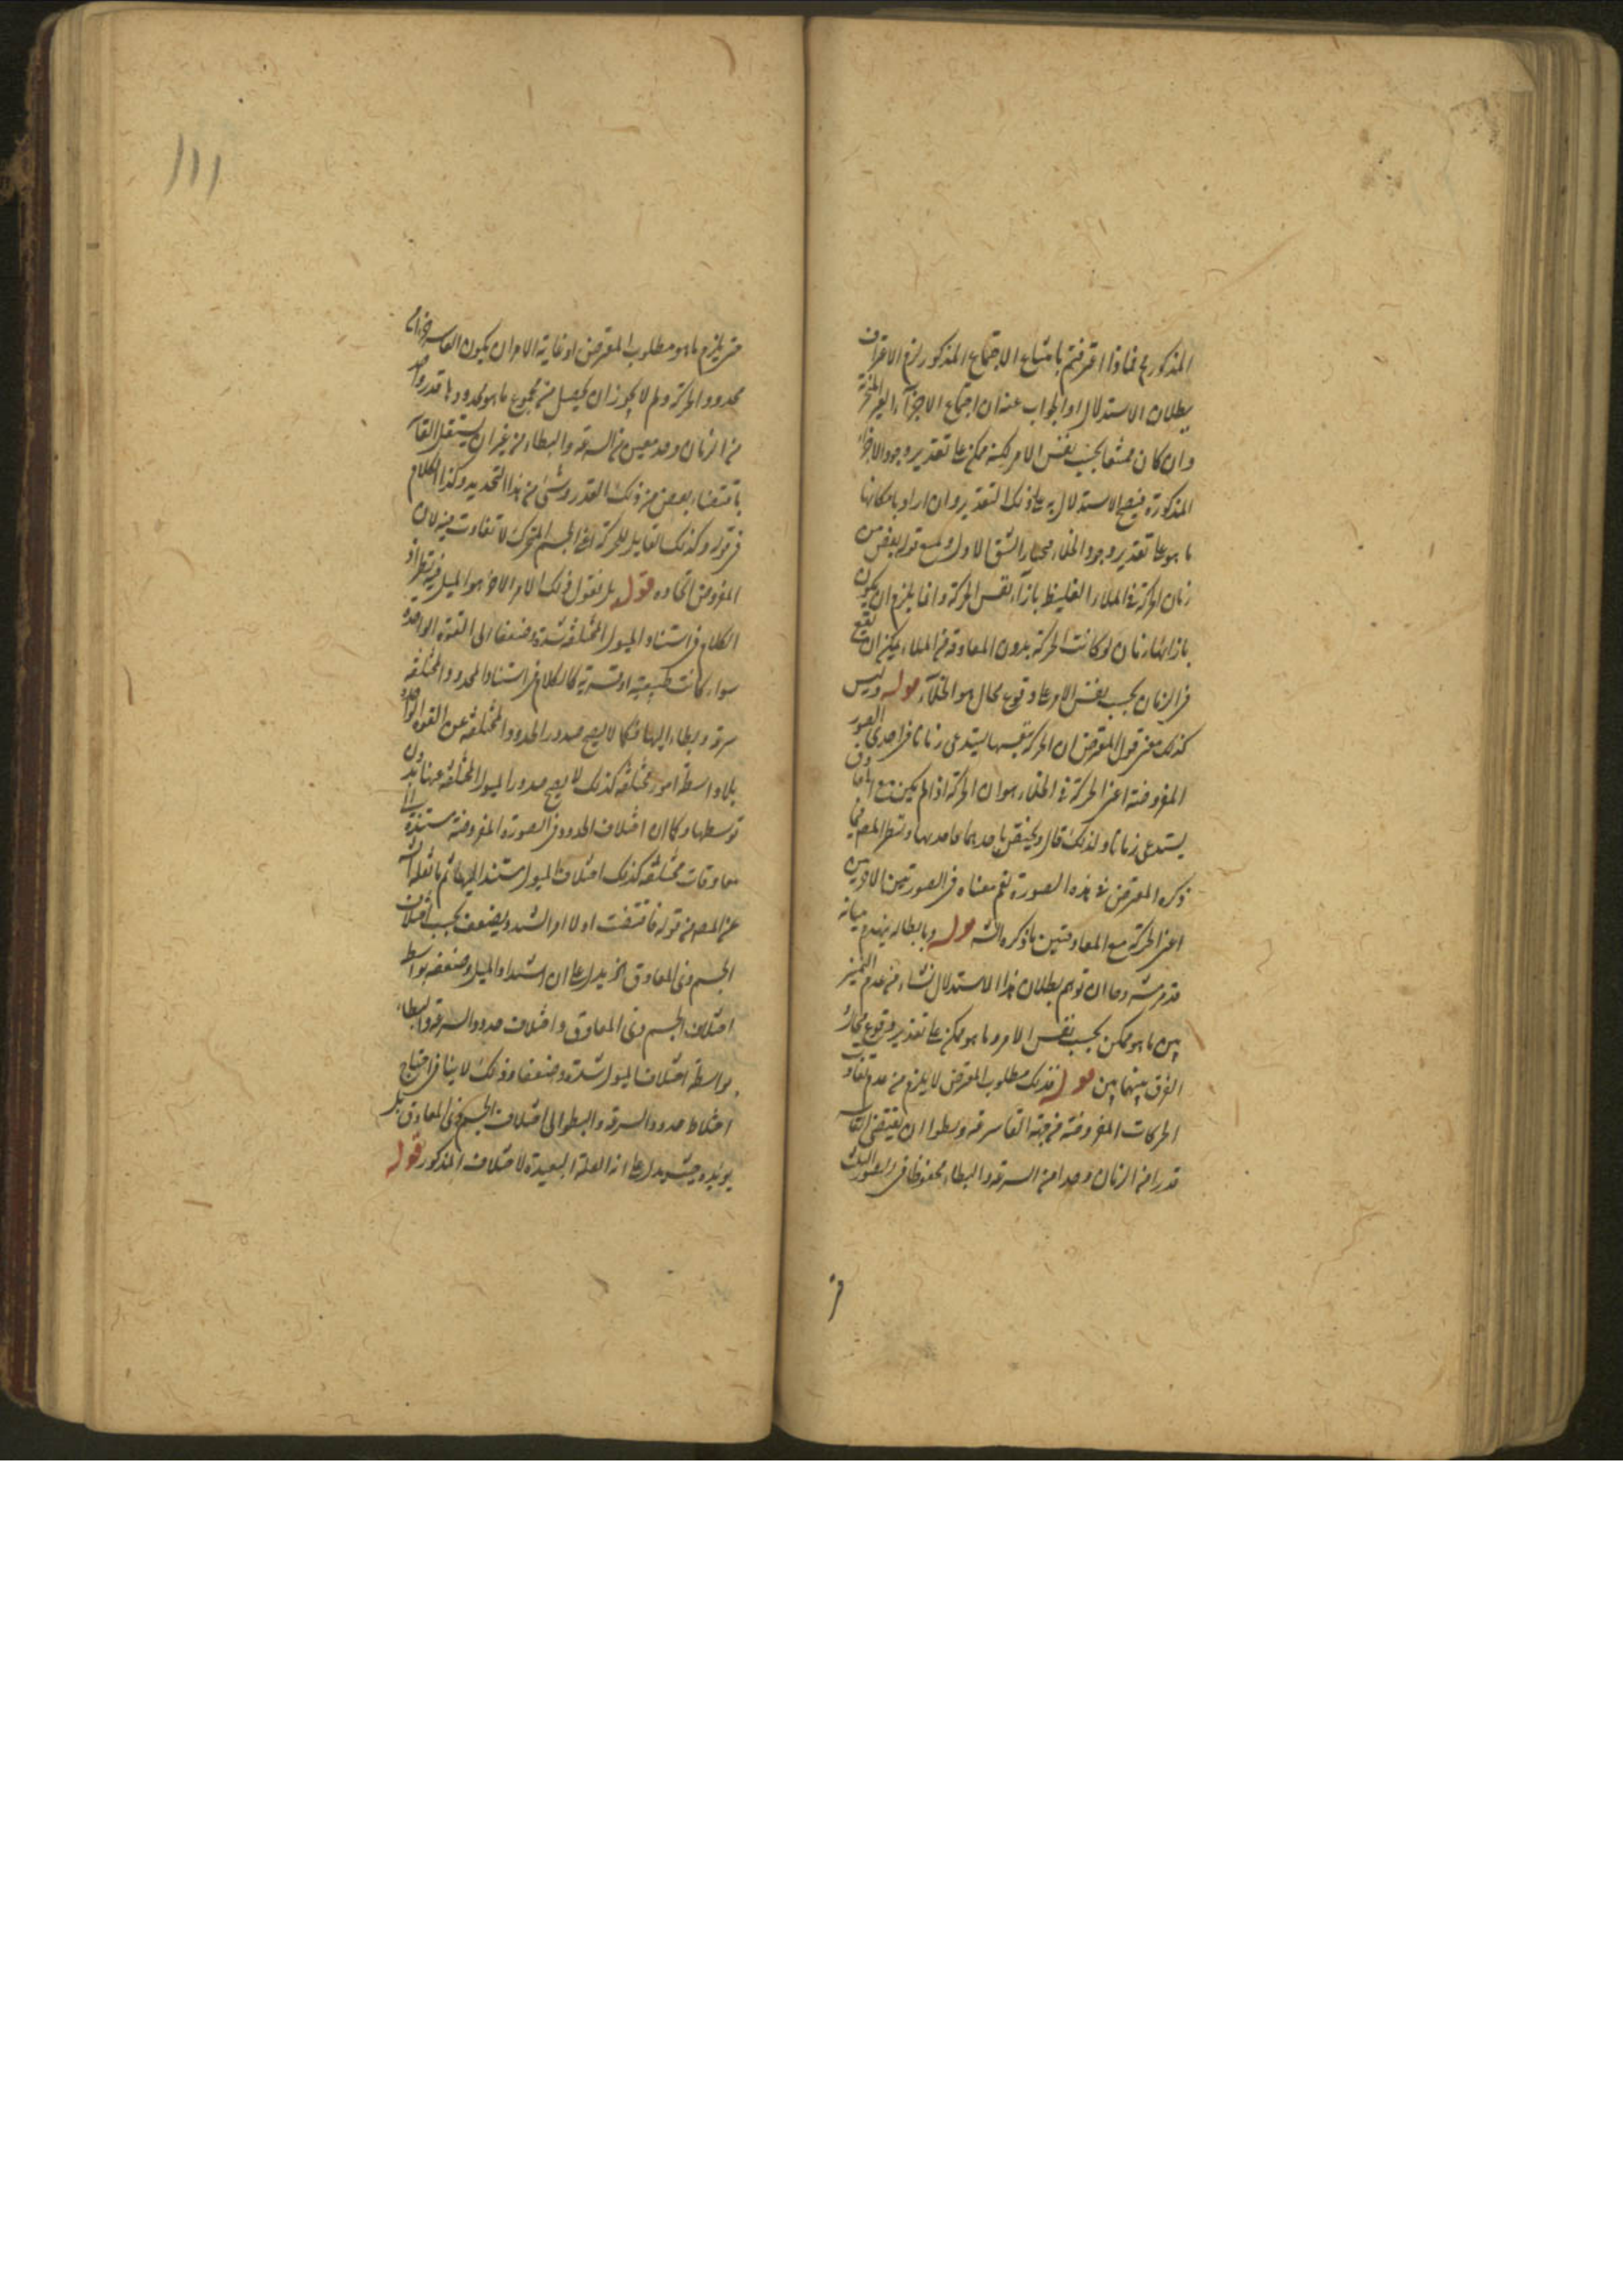 المذكور فماذا اعترفتم بامتناع الاجتماع المذكور لزم الاعتراف
ببطلان الاستدلال او الجواب عنه ان اجتماع الاجزاء الغير المتجزية
وان كان ممتنعا بحسب نفس الامر لكنه ممكن على تقدير وجود الاجزاء
المذكورة فيصح الاستدلال به على ذلك التقدير وان اراد بامكانها
ما هو على تقدير وجود الخلاء فيختار الشق الاول ويمنع قوله بعض من
زمان الحركة في الملاء الغليظ بازاء نفس الحركة وانما يلزم ان يكون
بازائها زمان لو كانت الحركة بدون المعاوقة في الملاء يمكن ان تقع
في الزمان بحسب نفس الامر على وقوع محال هو الخلاء قوله وليس
كذلك معنى قول المعترض ان الحركة بنفسها يستدعى زمانا في احدى الصور
المفروضة اعنى الحركة في الخلاء هو ان الحركة اذا لم يكن مع
يستدعى زمانا ولذلك قال ويختص باحديهما فاحديها ونظر المص فيما
ذكره المعترض في هذه الصورة لتم معناه في الصورتين الاخريين
اعنى الحركة مع المعاوقتين ما ذكره الش قوله وبابطاله ينهدم مبانه
قد مر منه وما ان توهم بطلان هذا الاستدلال نشاء من عدم التميز
بين ما هو ممكن بحسب نفس الامر وما هو ممكن على تقدير وقوع محال
الفرق بينهما بين قوله فذلك مطلوب المعترض لا يلزم من عدم تفاوت
الحركات المفروضة من جهة القاسر سرعة وبطوا ان يقتضى القاسر
قدرا من الزمان وحدا من السرعة والبطاء محفوظا في الصور الثلث
حتى يلزم ما هو مطلوب المعترض او غاية الامر ان يكون القاسر
محدود الحركة ولم لا يجوز ان يحصل من مجموع ما هو محدودها قدر واحد
من الزمان وحد معين من السرعة والبطاء من غير ان يستقل القاسر
باقتضاء بعض من ذلك القدر وشئ من هذا التحديد وكذا الكلام
في قوله وكذلك القابل للحركة اعنى الجسم المتحرك لا تفاوت فيه لان
المفروض اتحاده قوله بل نقول ذلك الامر الاخر هو الميل فيه نظر اذ
الكلام في استناد الميول المختلفة شدة وضعفا الى القوة الواحدة
سواء كانت طبيعية او قسرية كالكلام في استناد الحدود المختلفة
سرعة وبطاء اليها فكما لا يصح صدور الحدود المختلفة عن القوة الواحدة
بلا واسطة امور مختلفة كذلك لا يصح صدور الميول المختلفة عنها بدون
توسطها وكما ان اختلاف الحدود في الصورة المفروضة مستندة الى
معاوقات مختلفة كذلك اختلاف الميول مستند اليها ثم ما نقله الش
عن المص من قوله فاقتضت اولا امرا يشتد ويضعف بحسب اختلاف
الجسم ذى المعاوق الخ يدل على ان اشتداد الميل وضعفه بواسطة
اختلاف الجسم ذى المعاوق واختلاف حدود السرعة والبطاء
بواسطة اختلاف الميول شدة وضعفا وذلك لا ينافى احتياج
اختلاط حدود السرعة والبطوء الى اختلاف الجسم ذى المعاوق بل
يؤيده حيث يدل على انه العلة البعيدة لاختلاف المذكور قوله